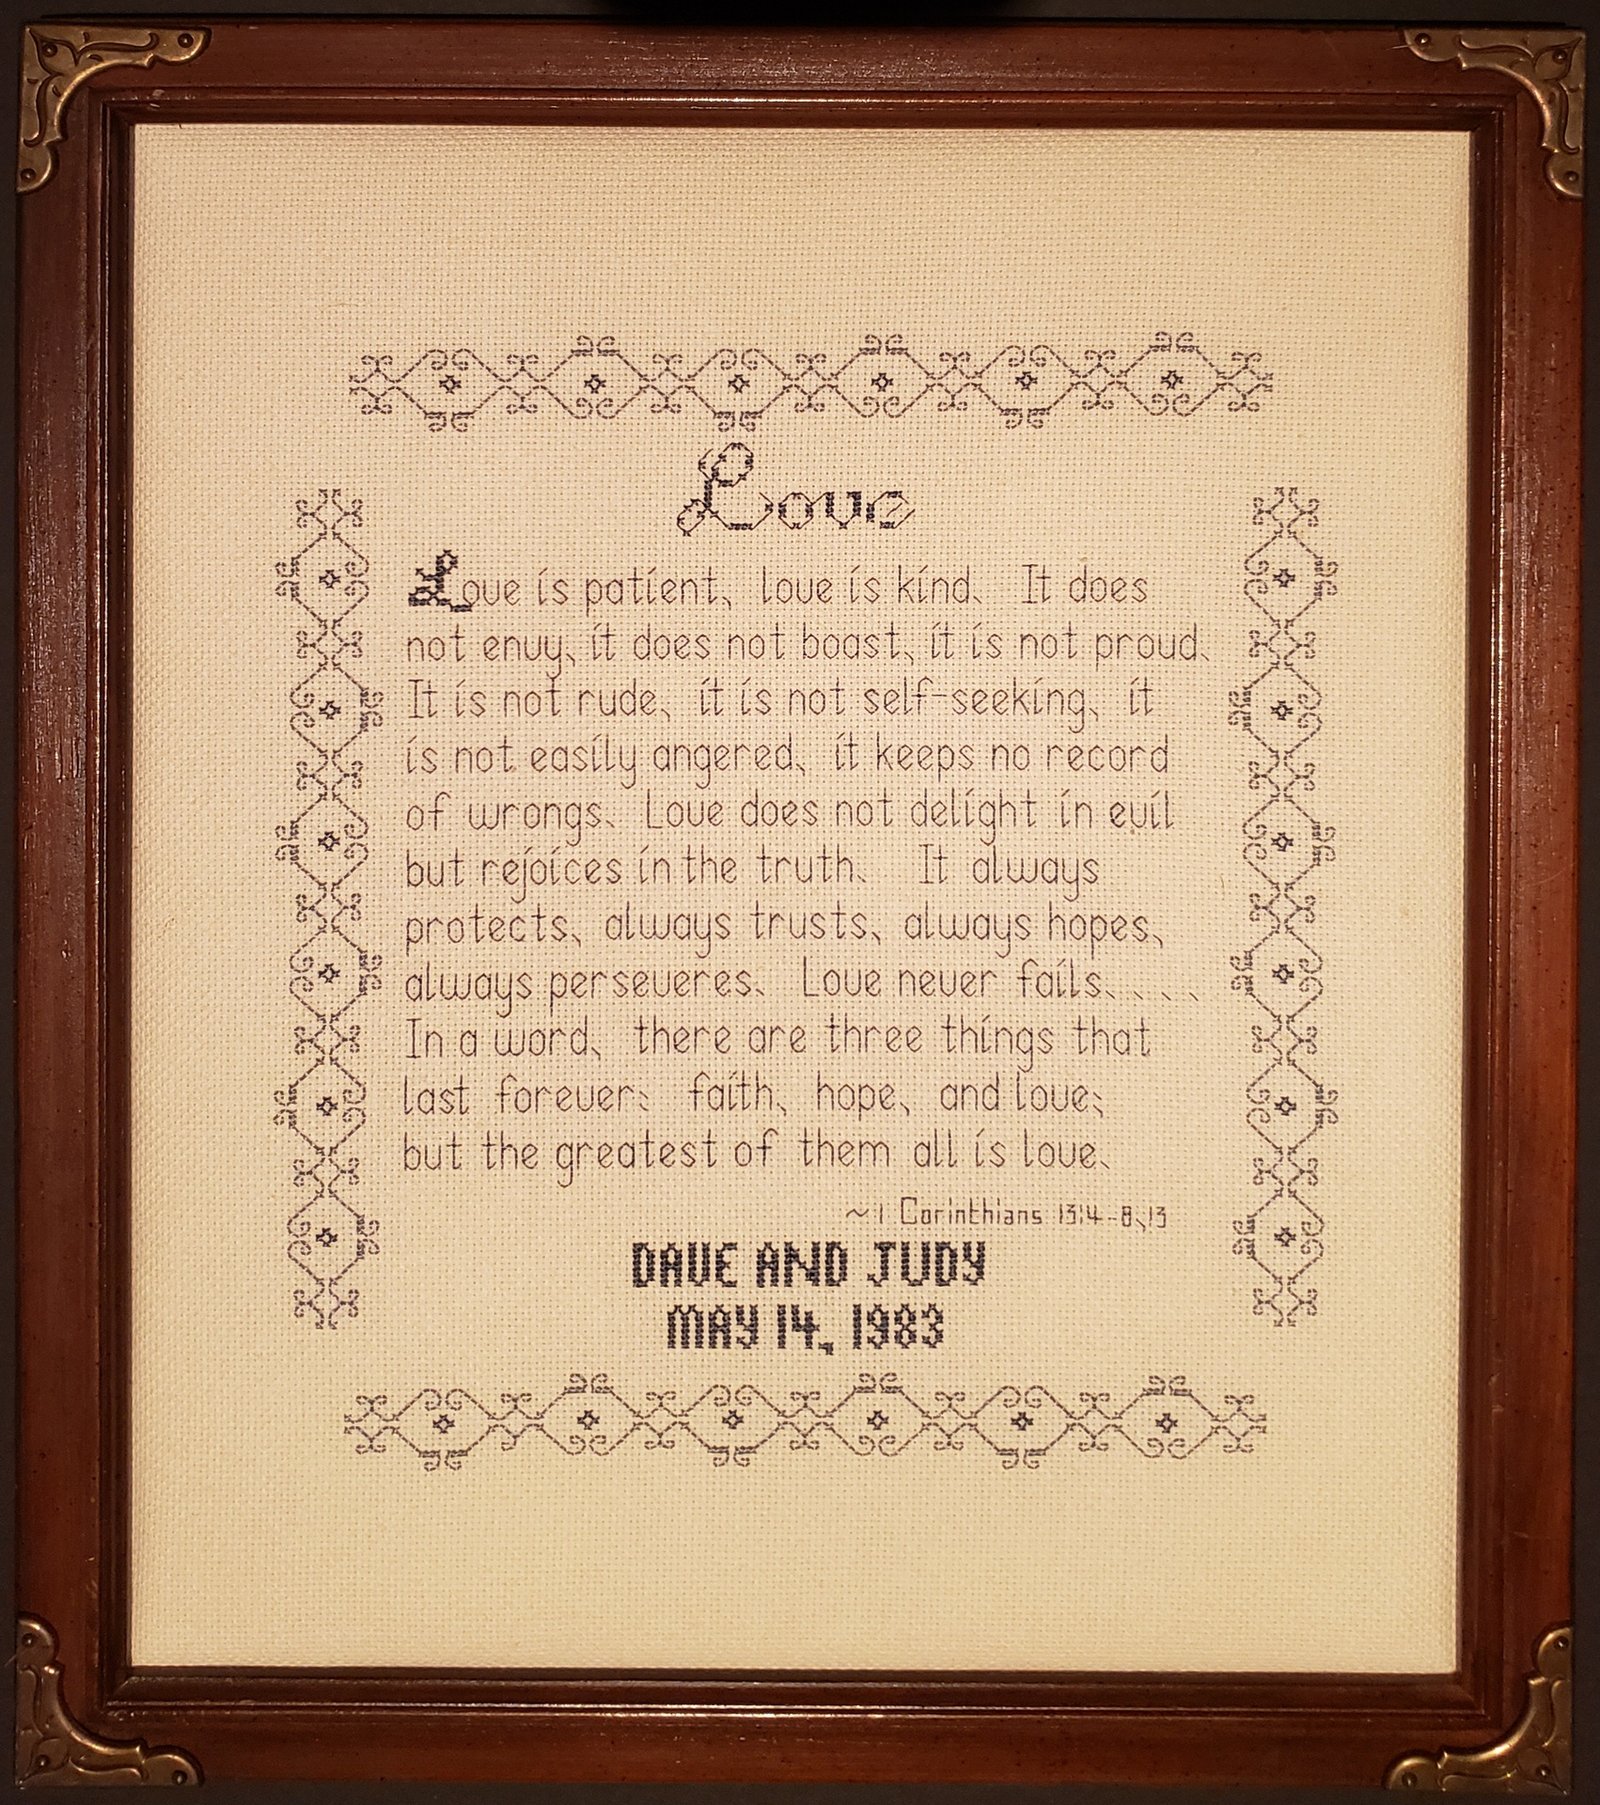 Love
Love is patient, love is kind. It does
not envy, it does not boast, it is not proud.
It is not rude, it is not self-seeking, it
is not easily angered, it keeps no record
of wrongs. Love does not delight in evil
but rejoices in the truth. It always
protects, always trusts, always hopes,
always perseveres. Love never fails.....
In a word, there are three things that
last forever: faith, hope, and love;
but the greatest of them all is love.
~1 Corinthians 13:4-8,13
DAVE AND JUDY
MAY 14, 1983